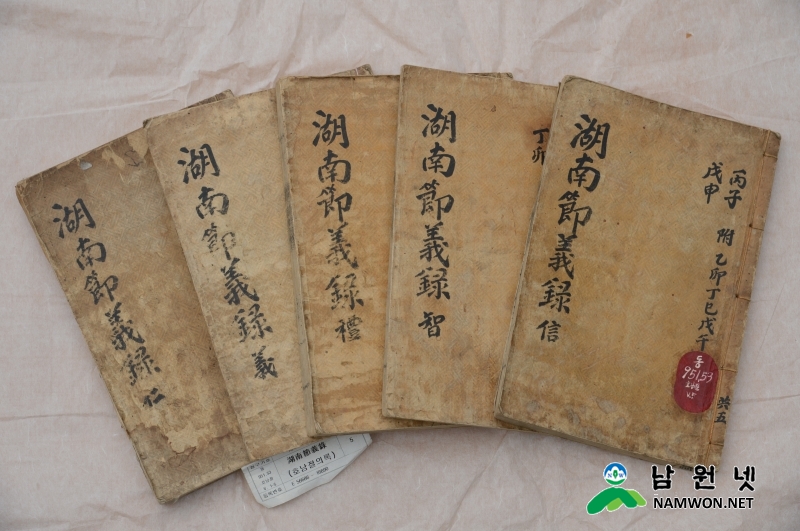 湖南節義録 仁
湖南節義録 義
湖南節義録 禮
湖南節義録 智
丁卯
湖南節義録 信
丙子
戊申
附 乙卯丁巳戊午
共五
동
951.53
湖南節義錄
(호남절의록)
남원넷
NAMWON.NET